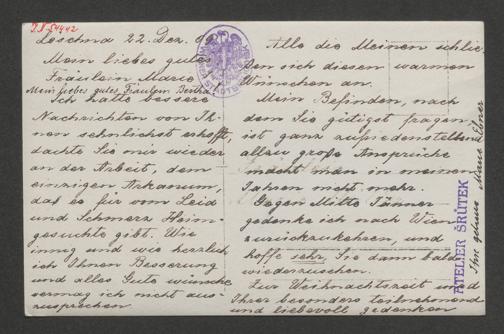 I.N. 54442
Loschna 22. Dez. 09.
Mein liebes gutes
Fräulein Marie
Mein liebes gutes Fräulein Bertha
Ich hatte bessere
Nachrichten von Ih-
nen sehnlichst erhofft,
dachte Sie mir wieder
an der Arbeit, dem
einzigen Arkanum,
das es für vom Leid
und Schmerz Heim-
gesuchte gibt. Wie
innig und wie herzlich
ich Ihnen Besserung
und alles Gute wünsche
vermag ich nicht aus-
zusprechen
Alle die Meinen schlie-
ßen sich diesen warmen
Wünschen an.
Mein Befinden, nach
dem Sie gütigst fragen
ist ganz zufriedenstellend
allzu große Ansprüche
macht man in meinen
Jahren nicht mehr.
Gegen Mitte Jänner
gedenke ich nach Wien
zurückzukehren, und
hoffe sehr, Sie dann bald
wiederzusehen.
Zur Weihnachtszeit wird
Ihrer besonders teilnehmend
und liebevoll gedenken
Ihre getreue Marie Ebner
ATELIER ŠRŮTEK